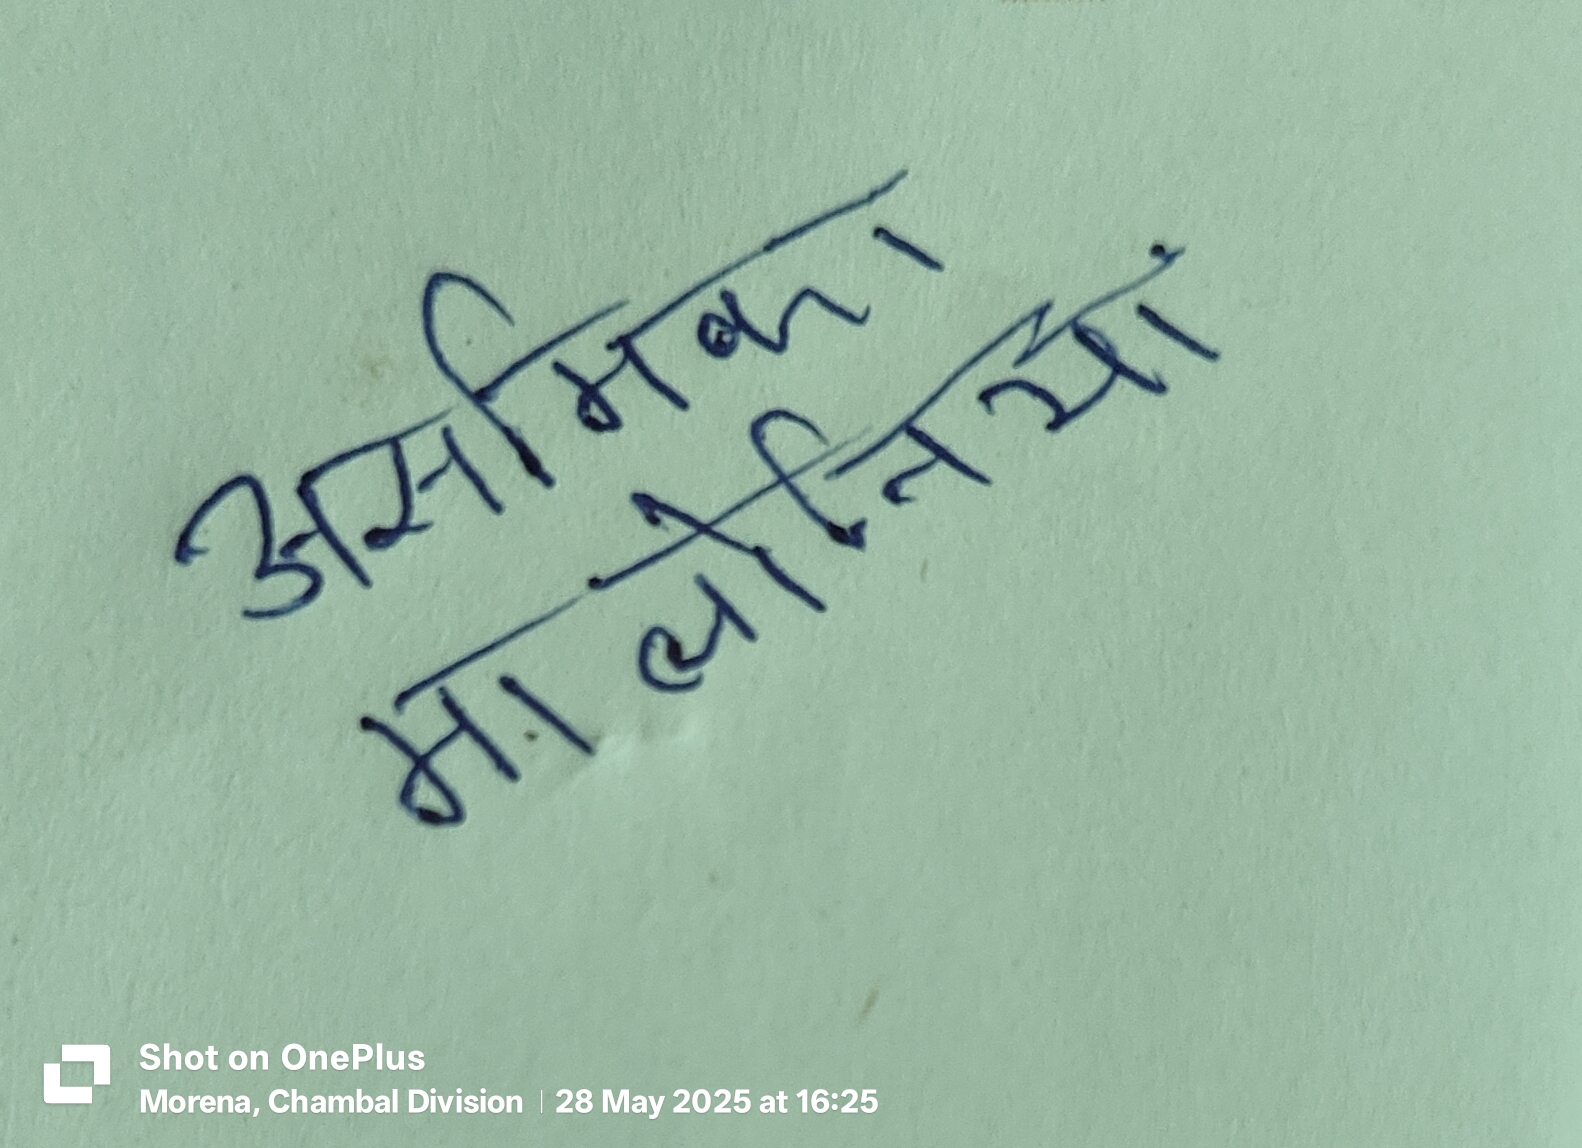 असमिका
मालोनियां
Shot on OnePlus
Morena, Chambal Division | 28 May 2025 at 16:25